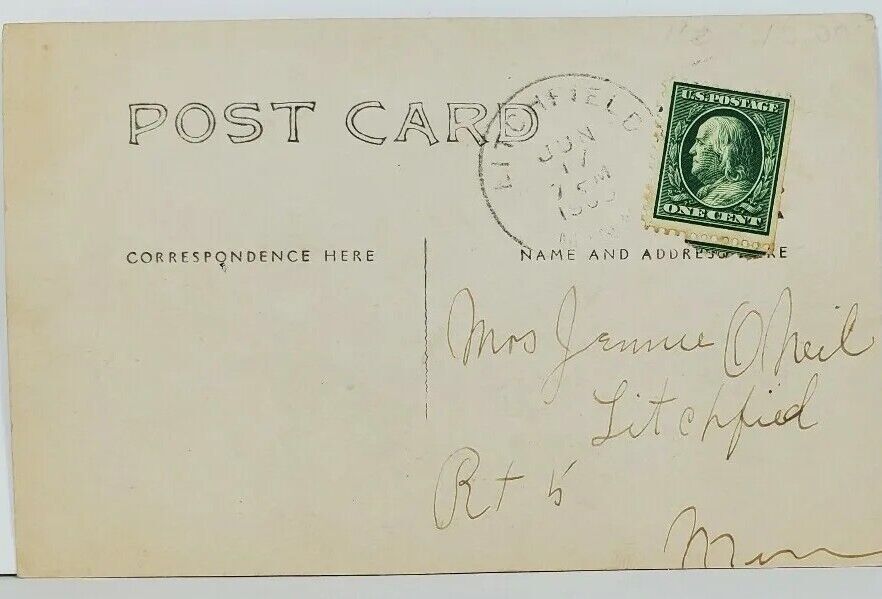 POST CARD
LITCHFIELD
JUN
17
MINN
U.S. POSTAGE
ONE CENT
CORRESPONDENCE HERE
NAME AND ADDRESS HERE
Mrs Jennie O Neil
Litchfied
Rt 5
Minn